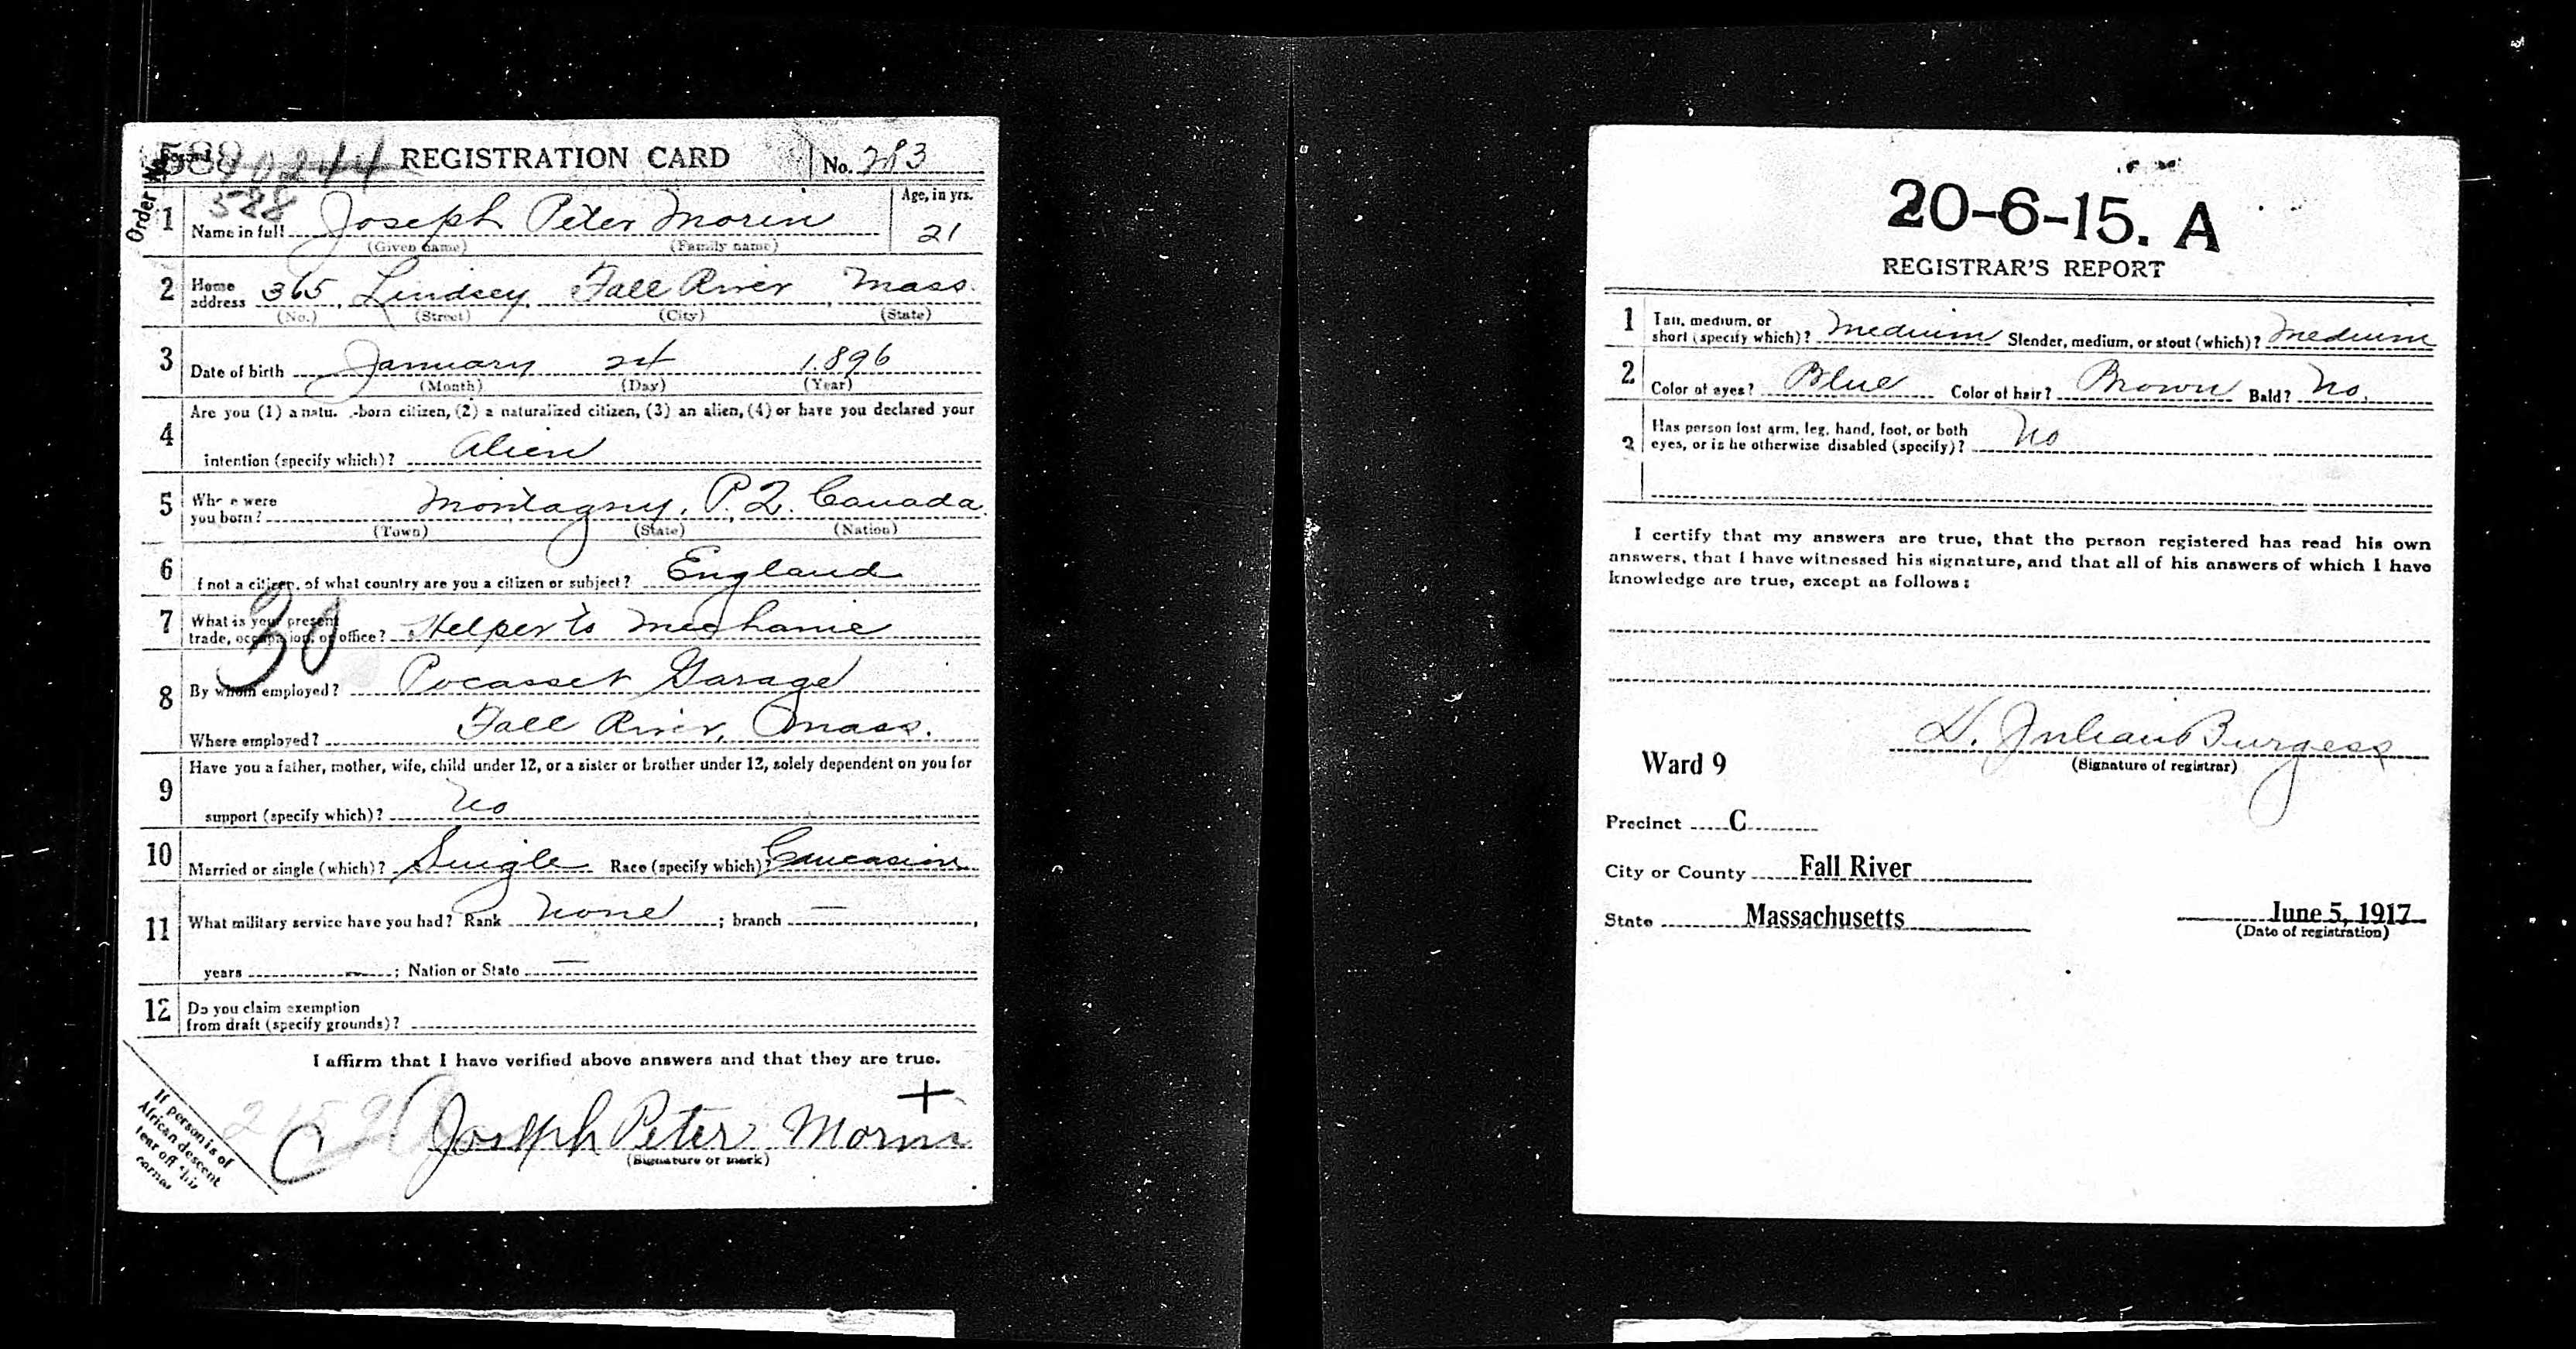 588
REGISTRATION CARD No. 283
Order No.
588
Age, in yrs.
1 Name in full Joseph Peter Morin 21
(Given name) (Family name)
2 Home address 365, Lindsey, Fall River, Mass.
(No.) (Street) (City) (State)
3 Date of birth January 24 1896
(Month) (Day) (Year)
Are you (1) a natu. -born citizen, (2) a naturalized citizen, (3) an alien, (4) or have you declared your
4 intention (specify which)? Alien
5 Whe e were you born? Montagny, P.Q. Canada.
(Town) (State) (Nation)
6 f not a citizen, of what country are you a citizen or subject? England
7 What is your present trade, occupation, or office? Helper to Mechanic
30
8 By whom employed? Pocasset Garage
Where employed? Fall River, Mass.
Have you a father, mother, wife, child under 12, or a sister or brother under 12, solely dependent on you for
9 support (specify which)? No
10 Married or single (which)? Single Race (specify which)? Caucasian
11 What military service have you had? Rank None ; branch —,
years — ; Nation or State —
12 Do you claim exemption from draft (specify grounds)?
I affirm that I have verified above answers and that they are true.
+
C Joseph Peter Morin
(Signature or mark)
If person is of
African descent
tear off this
corner
20-6-15. A
REGISTRAR'S REPORT
1 Tall, medium, or short (specify which)? Medium Slender, medium, or stout (which)? Medium
2 Color of eyes? Blue Color of hair? Brown Bald? No.
3 Has person lost arm, leg, hand, foot, or both eyes, or is he otherwise disabled (specify)? No
I certify that my answers are true, that the person registered has read his own
answers, that I have witnessed his signature, and that all of his answers of which I have
knowledge are true, except as follows:
Julian Burgess
Ward 9 (Signature of registrar)
Precinct C
City or County Fall River
State Massachusetts June 5, 1917
(Date of registration)